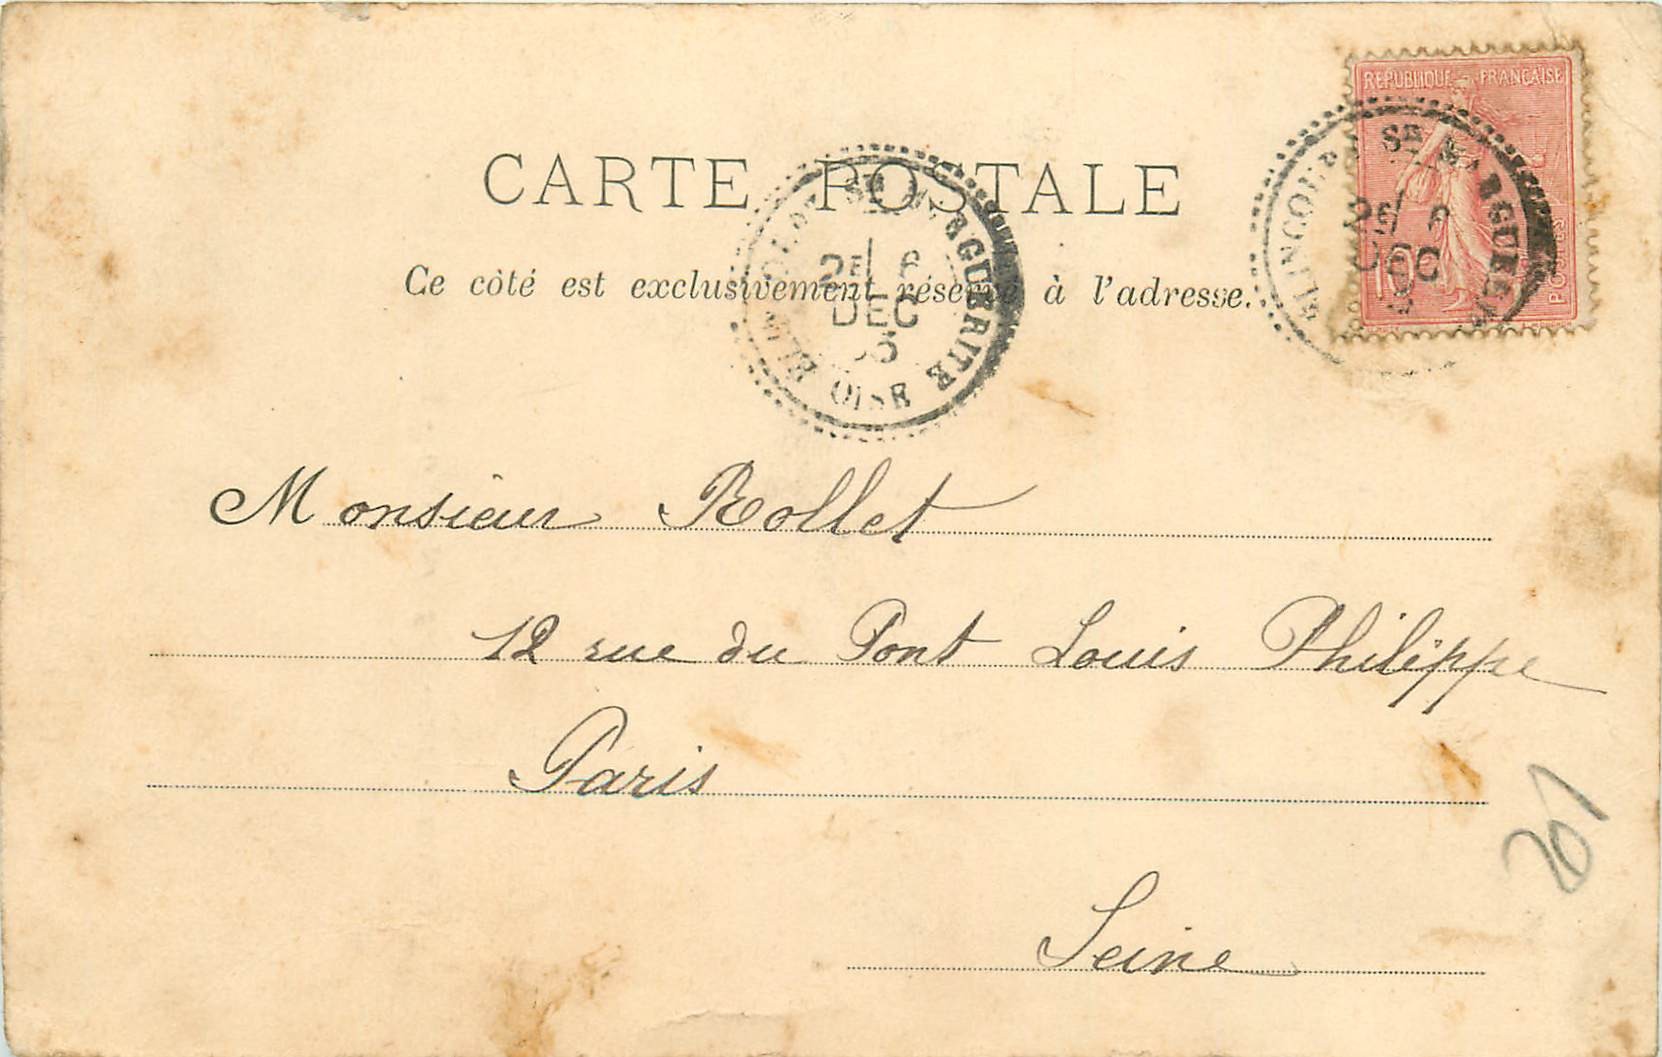 RÉPUBLIQUE FRANÇAISE
10
POSTES
CARTE POSTALE
Ce côté est exclusivement réservé à l'adresse.
Ste MARGUERITE
2E 6
DEC
OISE
DEC
Monsieur Rollet
12 rue du Pont Louis Philippe
Paris
Seine
201